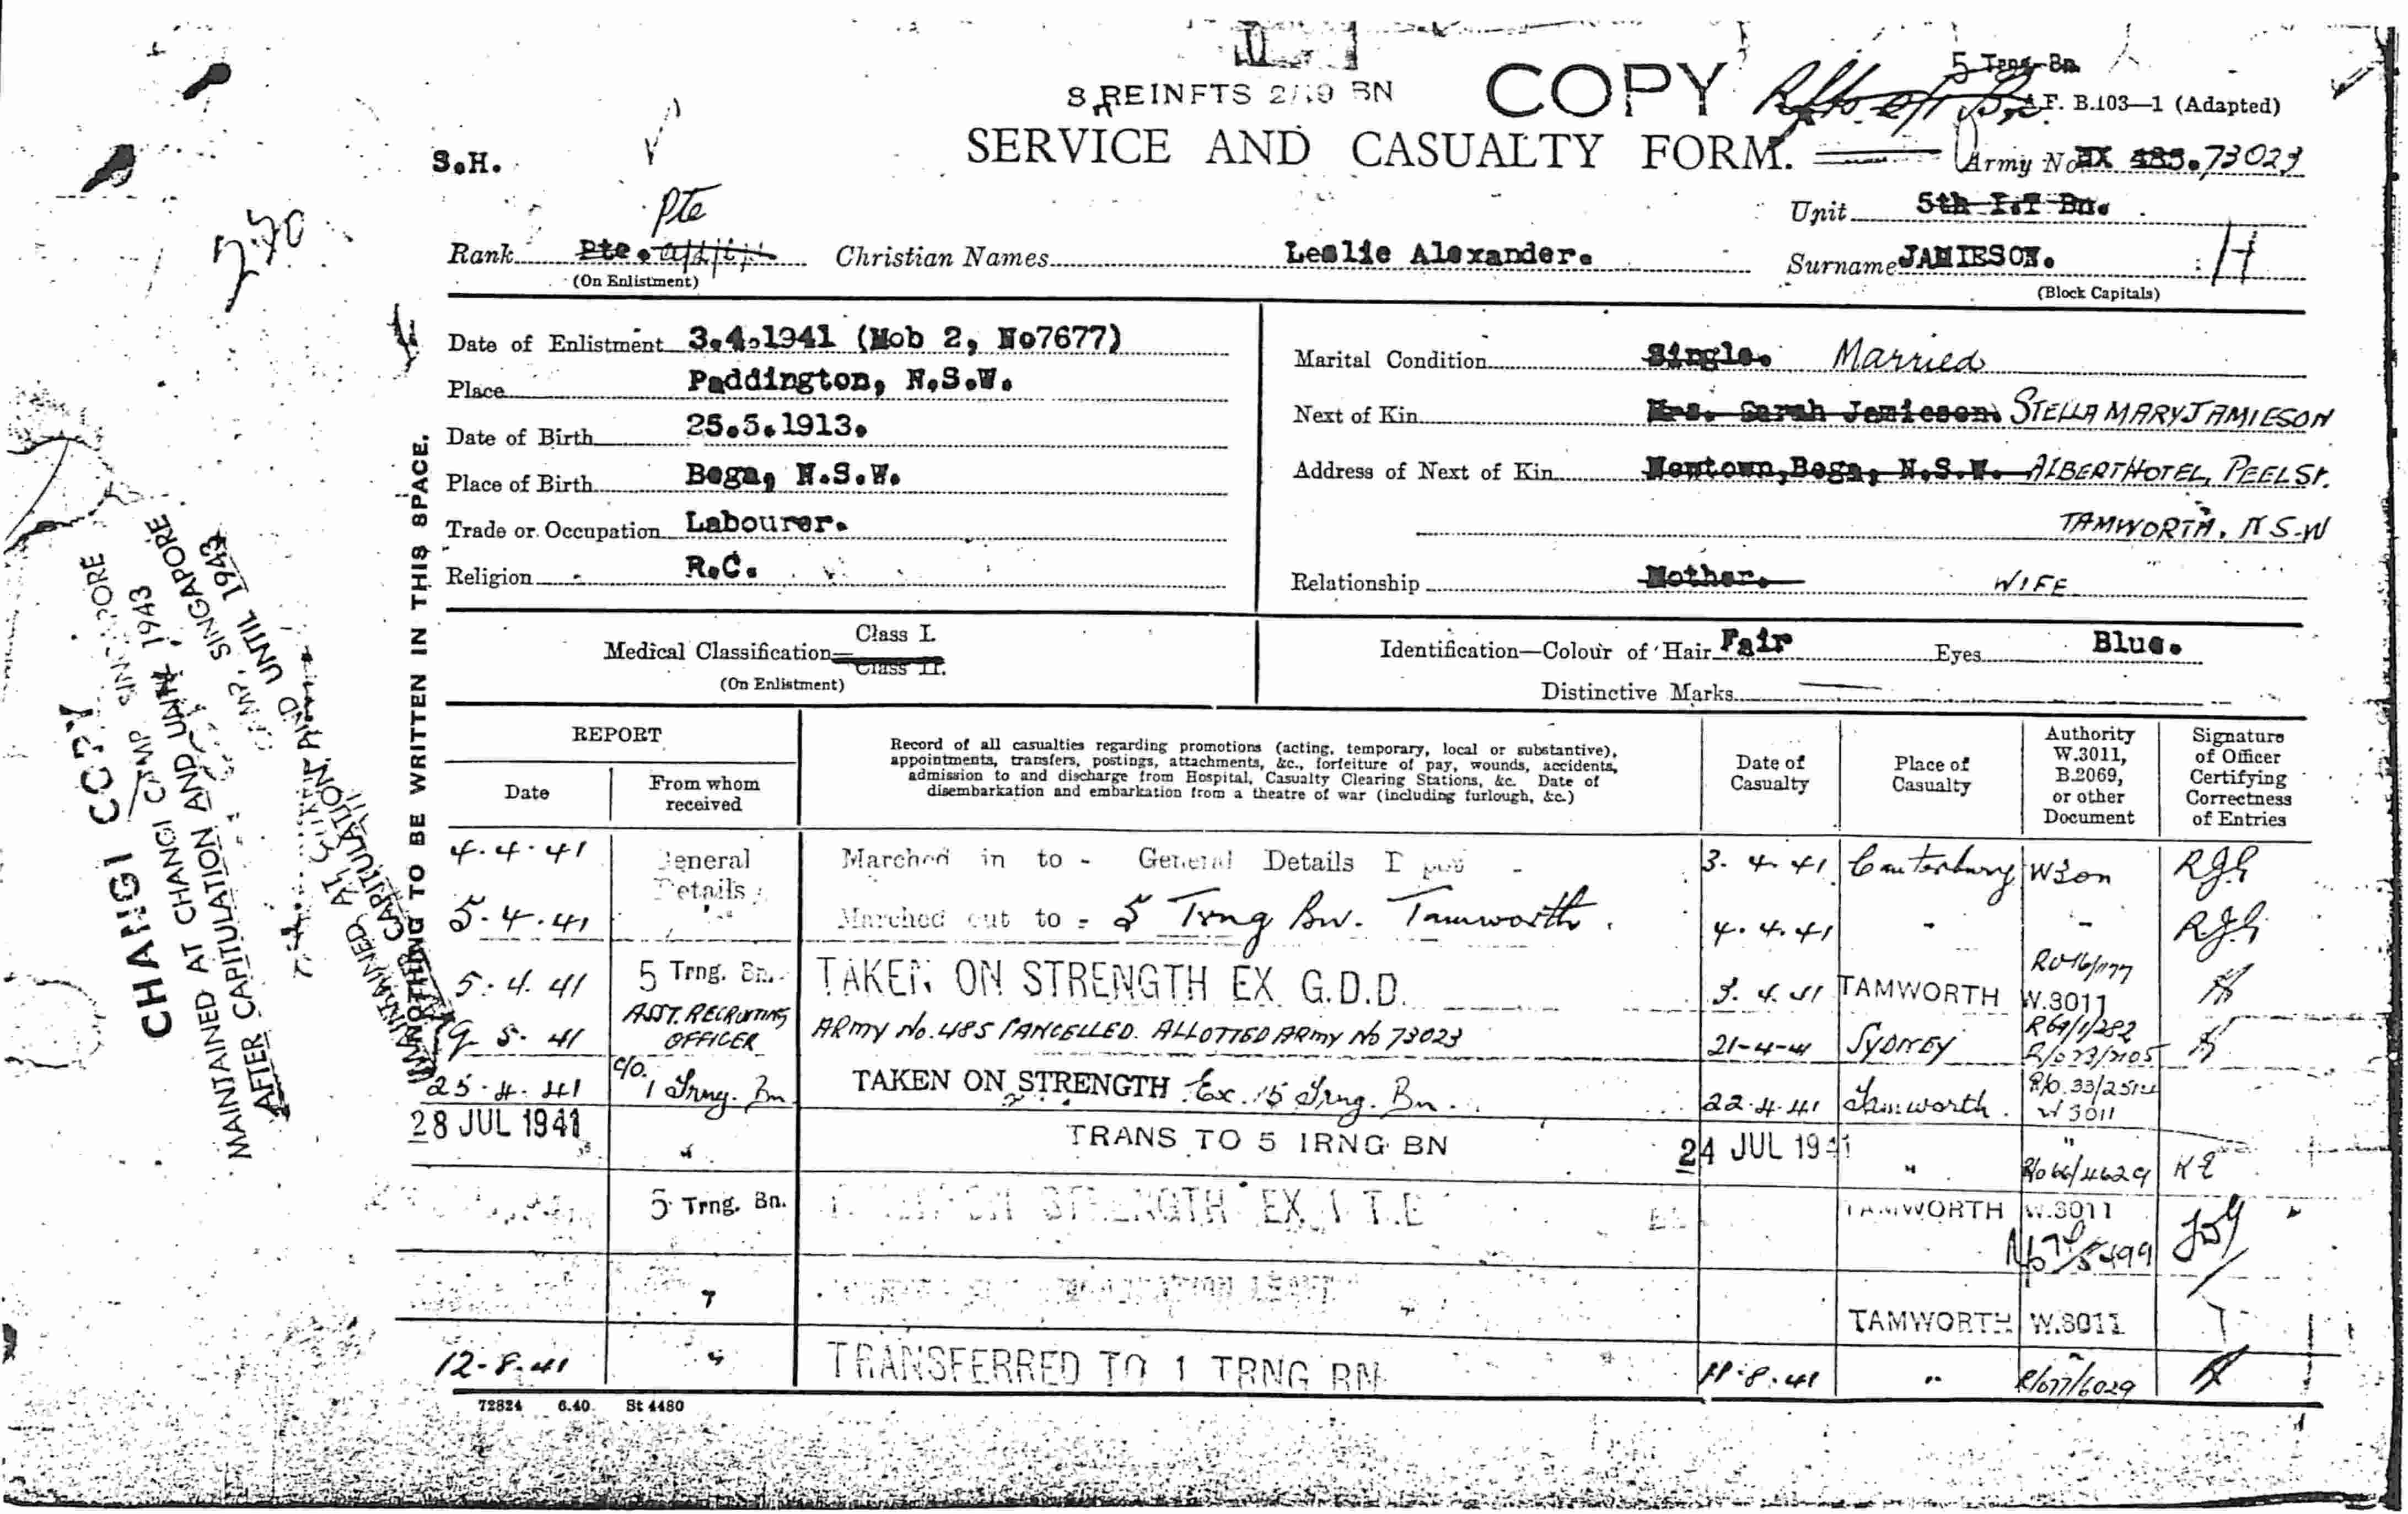 8 REINFTS 2/19 BN
COPY
5 Trng. Bn.
A.F. B.103—1 (Adapted)
SERVICE AND CASUALTY FORM.
S.H.
Army No. NX 485. 73023
Unit 5th I.T Bn.
Pte
Rank Pte. Christian Names Leslie Alexander. Surname JAMIESON. H
(On Enlistment) (Block Capitals)
Date of Enlistment 3.4.1941 (Mob 2, No7677)
Place Paddington, N.S.W.
Date of Birth 25.5.1913.
Place of Birth Bega, N.S.W.
Trade or Occupation Labourer.
Religion R.C.
Marital Condition Single. Married
Next of Kin Mrs. Sarah Jamieson. STELLA MARY JAMIESON
Address of Next of Kin Newtown, Bega, N.S.W. ALBERT HOTEL, PEEL St.
TAMWORTH, N S.W
Relationship Mother. WIFE
Medical Classification Class I.
Class II.
(On Enlistment)
Identification—Colour of Hair Fair Eyes Blue.
Distinctive Marks
NOTHING TO BE WRITTEN IN THIS SPACE.
CHANGI COPY
MAINTAINED AT CHANGI CAMP SINGAPORE
AFTER CAPITULATION AND UNTIL 1943
REPORT
Date
From whom received
Record of all casualties regarding promotions (acting, temporary, local or substantive),
appointments, transfers, postings, attachments, &c., forfeiture of pay, wounds, accidents,
admission to and discharge from Hospital, Casualty Clearing Stations, &c. Date of
disembarkation and embarkation from a theatre of war (including furlough, &c.)
Date of Casualty
Place of Casualty
Authority W.3011, B.2069, or other Document
Signature of Officer Certifying Correctness of Entries
4.4.41 General Details Marched in to - General Details 3.4.41 Canterbury
5.4.41 Marched out to - 5 Trng Bn. Tamworth. 4.4.41 "
5.4.41 5 Trng. Bn. TAKEN ON STRENGTH EX G.D.D. TAMWORTH W.3011
9 5. 41 ASST. RECRUITING OFFICER ARMY No. 485 CANCELLED. ALLOTTED ARMY No 73023 21-4-41 SYDNEY
25.4.41 1 Trng. Bn TAKEN ON STRENGTH Ex. 5 Trng. Bn. 22.4.41 Tamworth. R/o.33/2514 W 3011
28 JUL 1941 " TRANS TO 5 TRNG BN 24 JUL 1941 " " R/o 66/4629
5 Trng. Bn. STRENGTH EX 1 T.B TAMWORTH W.3011
" LEAVE TAMWORTH W.3011
12-8-41 " TRANSFERRED TO 1 TRNG BN 11.8.41 " R/o77/6029
72824 6.40. St 4480